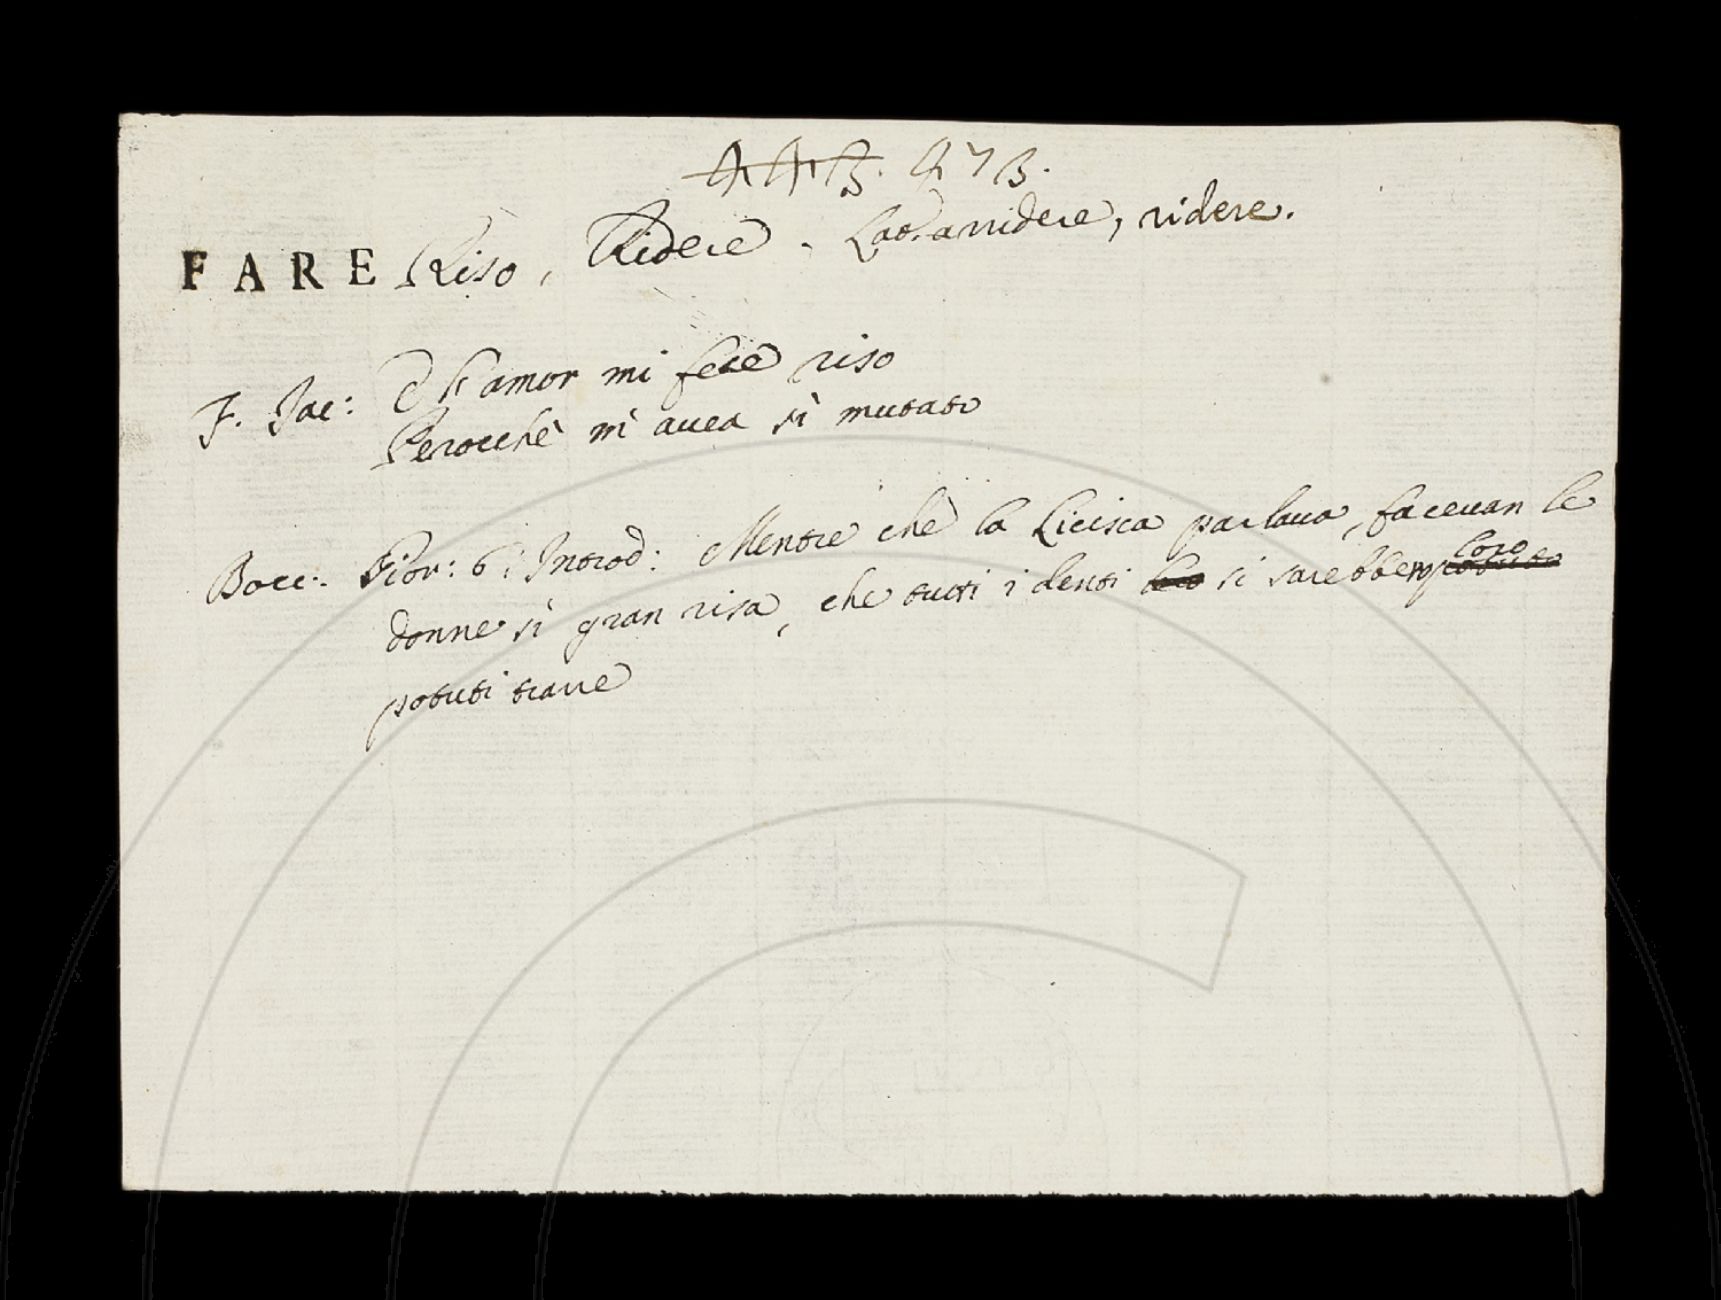 443. 473.
FARE Riso, Ridere. Lat. arridere, ridere.
F. Jac: Ch'amor mi fece riso
Perocchè m'avea sì mutato
Bocc. Fior: 6: Introd: Mentre che la Licisca parlava, facevan le
donne sì gran risa, che tutti i denti si sarebbero loro
potuti trarre